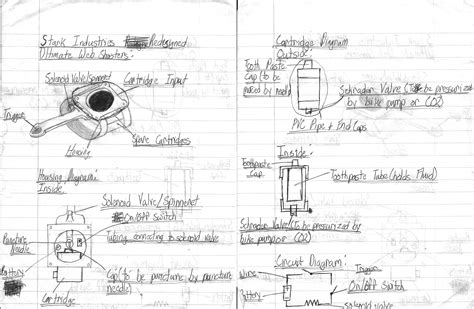 Stark Industries Redesigned
Ultimate Web Shooters:
Solenoid Valve/Spinneret
Cartridge Input
Trigger
Spare Cartridges
Housing
Housing Diagram:
Inside:
Solenoid Valve/Spinneret
On/Off Switch
Puncture
Needle
Tubing connecting to solenoid valve
Battery
Cap (to be puncture by puncture
needle)
Cartridge
Cartridge Diagram
Outside:
Tooth Paste
Cap (to be
by needle)
Schrader Valve (to be pressurized
by bike pump or CO2)
PVC Pipe + End Caps
Inside:
Toothpaste
Cap
Toothpaste Tube (holds Fluid)
Schrader Valve (to be pressurized by
bike pump or CO2)
Circuit Diagram:
Wire
Trigger
On/Off Switch
Battery
Solenoid valve